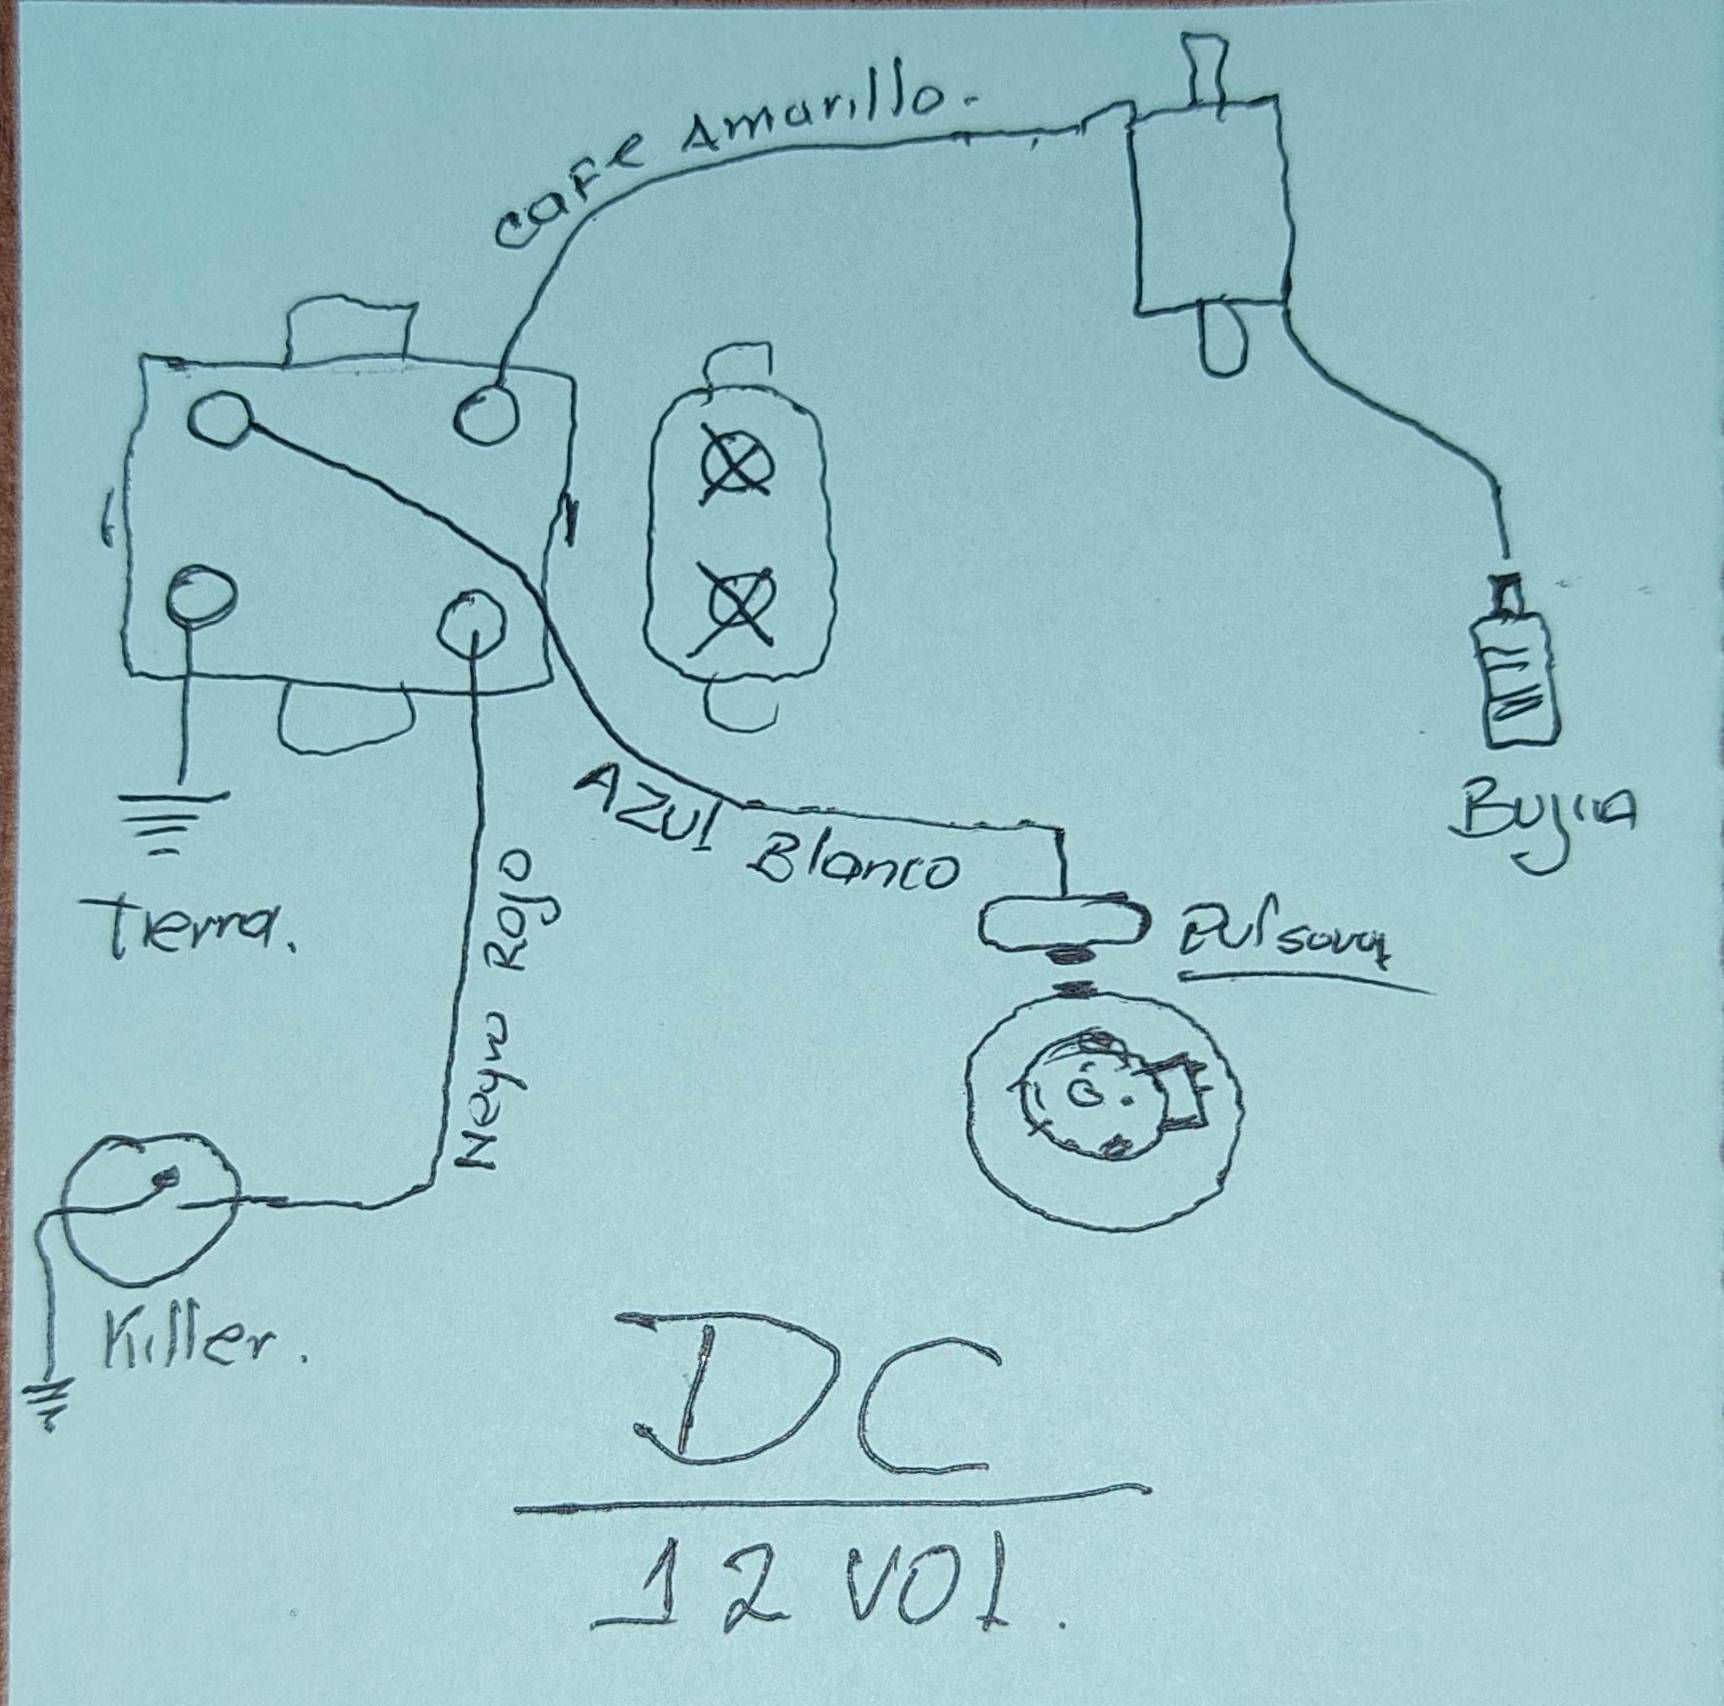 Cafe Amarillo.
Azul Blanco
Bujia
Tierra.
Pulsora
Negro Rojo
Killer.
DC
12 VOL.